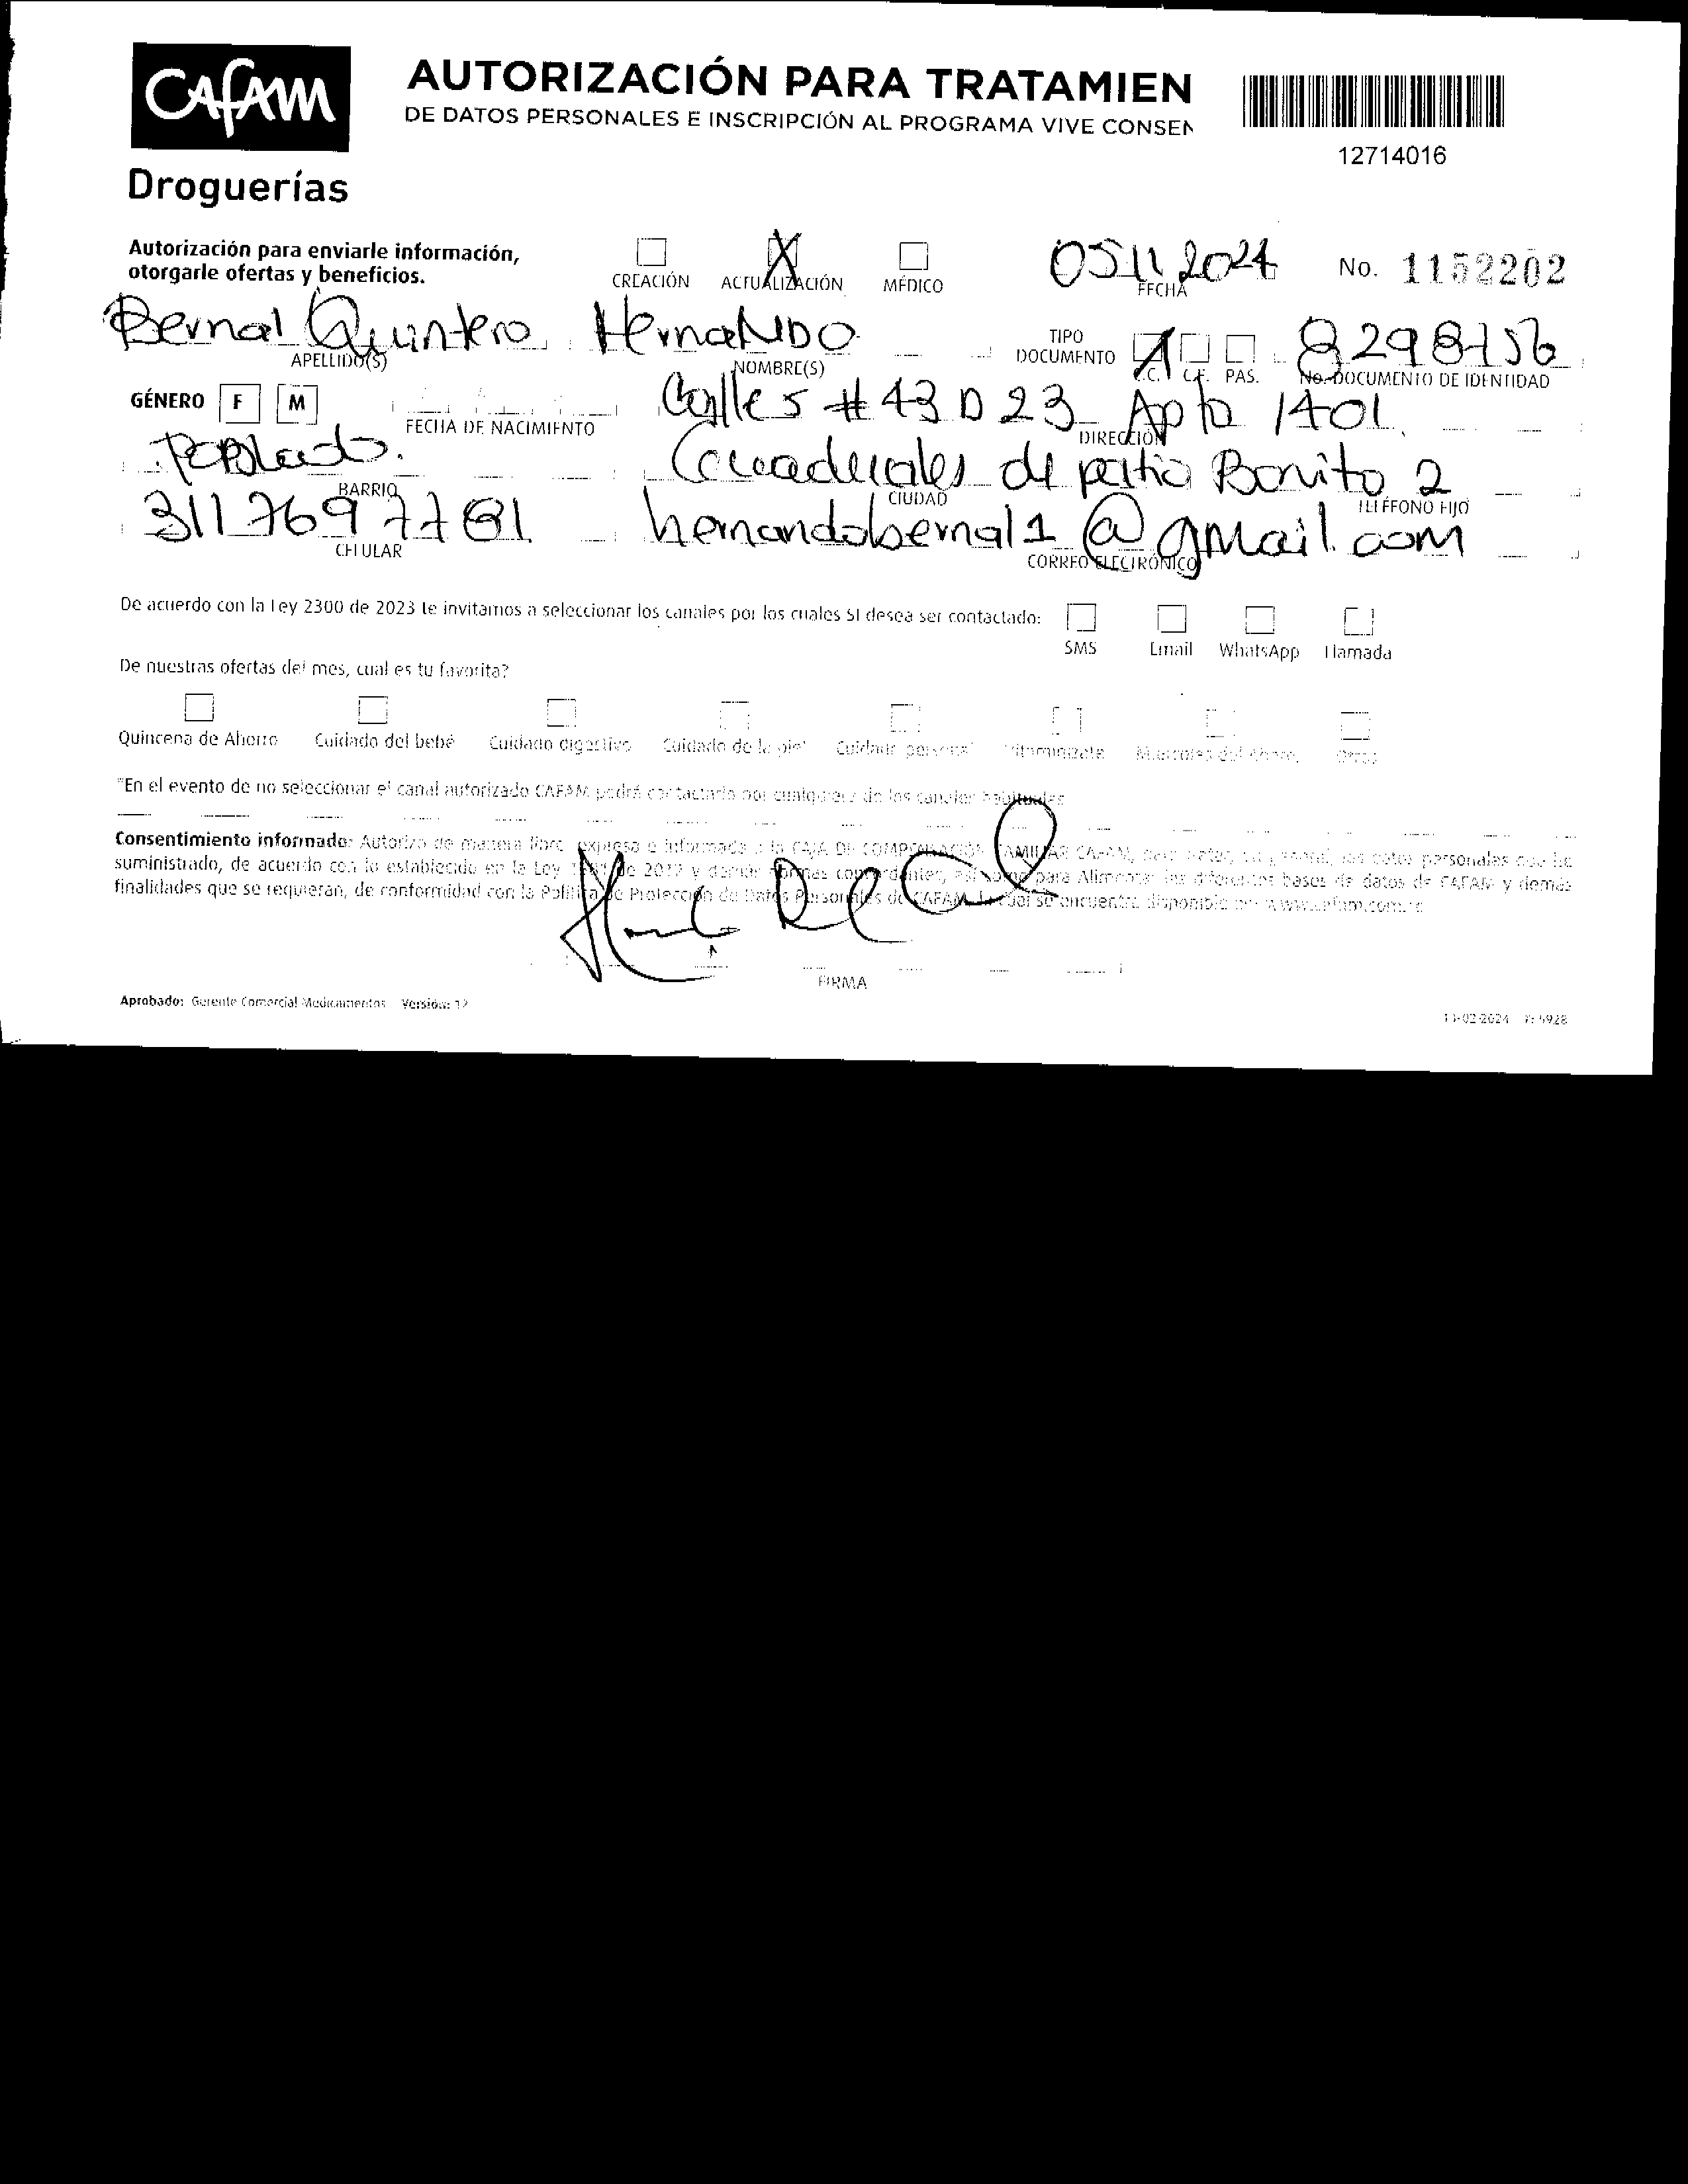 CAFAM
Droguerías
AUTORIZACIÓN PARA TRATAMIEN
DE DATOS PERSONALES E INSCRIPCIÓN AL PROGRAMA VIVE CONSEN
12714016
Autorización para enviarle información,
otorgarle ofertas y beneficios.
CREACIÓN ACTUALIZACIÓN MÉDICO
05 11 2024
FECHA
No. 1152202
Bernal Quintero Hernando
APELLIDO(S) NOMBRE(S)
TIPO
DOCUMENTO
C.C. C.E. PAS.
8298156
No. DOCUMENTO DE IDENTIDAD
GÉNERO F M
FECHA DE NACIMIENTO
Calle 5 # 43 D 23 Apto 1401
DIRECCIÓN
Poblado.
BARRIO
de patio Bonito 2
CIUDAD TELÉFONO FIJO
3117697781
CELULAR
hernandobernal1@gmail.com
CORREO ELECTRÓNICO
De acuerdo con la Ley 2300 de 2023 te invitamos a seleccionar los canales por los cuales SI desea ser contactado:
SMS Email WhatsApp Llamada
De nuestras ofertas del mes, cual es tu favorita?
Quincena de Ahorro Cuidado del bebé Cuidado digestivo Cuidado de la piel Cuidado personal Vitaminízate Otros
*En el evento de no seleccionar el canal autorizado CAFAM podrá contactarlo por cualquiera de los canales habituales
Consentimiento informado: Autorizo de manera libre, expresa e informada a la CAJA DE COMPENSACIÓN FAMILIAR CAFAM, los datos personales que he
suministrado, de acuerdo con lo establecido en la Ley 1581 de 2012 y demás normas concordantes, así como para Alimentar las diferentes bases de datos de CAFAM y demás
finalidades que se requieran, de conformidad con la Política de Protección de Datos Personales de CAFAM, la cual se encuentra disponible en: www.cafam.com.co
FIRMA
Aprobado: Gerente Comercial Medicamentos Versión: 12